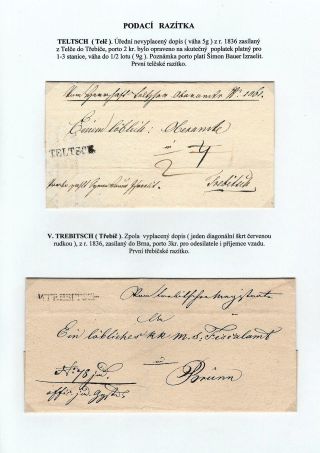 PODACÍ RAZÍTKA
TELTSCH ( Telč ). Úřední nevyplacený dopis ( váha 5g ) z r. 1836 zasílaný
z Telče do Třebíče, porto 2 kr. bylo opraveno na skutečný poplatek platný pro
1-3 stanice, váha do 1/2 lotu ( 9g ). Poznámka porto platí Šimon Bauer Izraelit.
První telčské razítko.
Vom Herrschaft Teltscher Oberamte
Einem löblich: Oberamte
TELTSCH.
in
2 4
Trebitsch
V. TREBITSCH ( Třebíč ). Zpola vyplacený dopis ( jeden diagonální škrt červenou
rudkou ), z r. 1836, zasílaný do Brna, porto 3kr. pro odesilatele i příjemce vzadu.
První třebíčské razítko.
V. TREBITSCH
Vom trebitscher Magistrate
Ein löblicher k.k. m. s. Fiscalamt
in
No. 78 jud.
Brünn